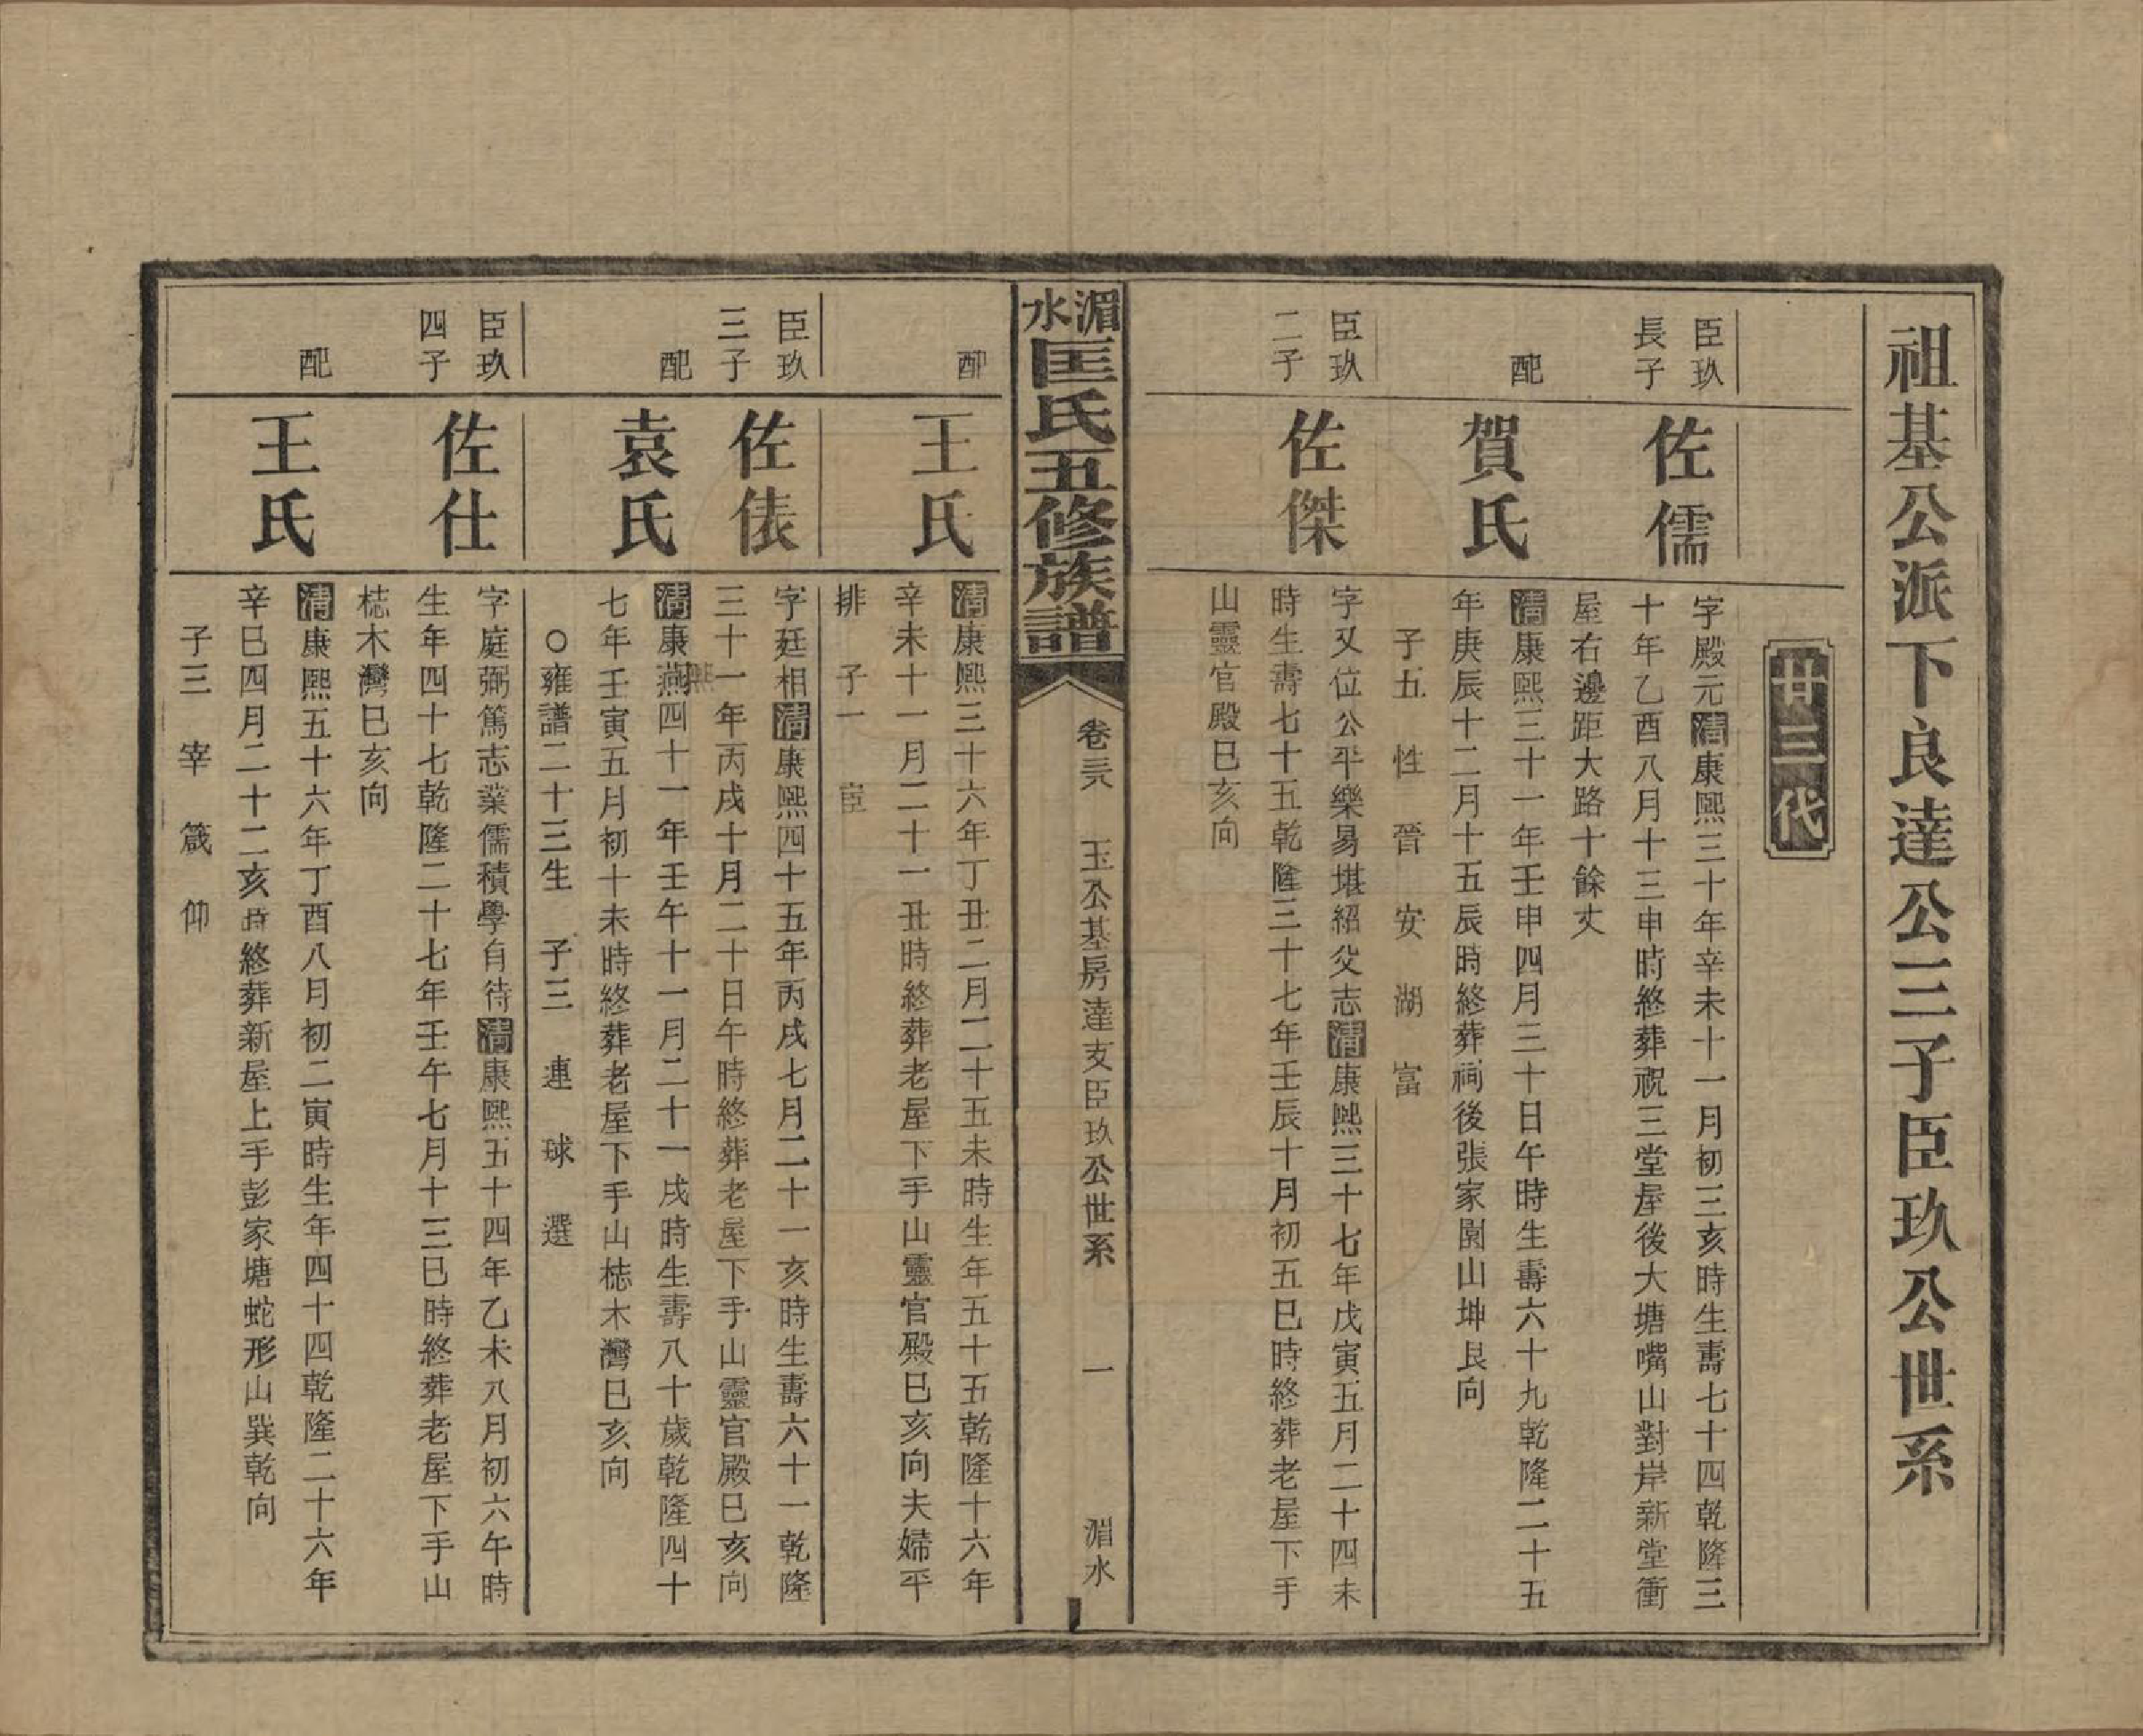 祖基公派下良達公三子臣玖公世系
廿三代
臣玖
長子
佐儒
字殿元清康熙三十年辛未十一月初三亥時生壽七十四乾隆三
十年乙酉八月十三申時終葬祝三堂屋後大塘嘴山對岸新堂衝
屋右邊距大路十餘丈
配
賀氏
清康熙三十一年壬申四月三十日午時生壽六十九乾隆二十五
年庚辰十二月十五辰時終葬祠後張家園山坤艮向
子五 性 晉 安 湖 富
臣玖
二子
佐傑
字又位公平樂易堪紹父志清康熙三十七年戊寅五月二十四未
時生壽七十五乾隆三十七年壬辰十月初五巳時終葬老屋下手
山靈官殿巳亥向
湄水
匡氏五修族譜
卷三八 玉公基房達支臣玖公世系 一 湄水
配
王氏
清康熙三十六年丁丑二月二十五未時生年五十五乾隆十六年
辛未十一月二十一丑時終葬老屋下手山靈官殿巳亥向夫婦平
排 子一 宦
臣玖
三子
佐俵
字廷相清康熙四十五年丙戌七月二十一亥時生壽六十一乾隆
三十一年丙戌十月二十日午時終葬老屋下手山靈官殿巳亥向
配
袁氏
清康熙四十一年壬午十一月二十一戌時生壽八十歲乾隆四十
七年壬寅五月初十未時終葬老屋下手山梽木灣巳亥向
○雍譜二十三生 子三 連 球 選
臣玖
四子
佐仕
字庭弼篤志業儒積學自待清康熙五十四年乙未八月初六午時
生年四十七乾隆二十七年壬午七月十三巳時終葬老屋下手山
梽木灣巳亥向
配
王氏
清康熙五十六年丁酉八月初二寅時生年四十四乾隆二十六年
辛巳四月二十二亥時終葬新屋上手彭家塘蛇形山巽乾向
子三 宰 箴 仰